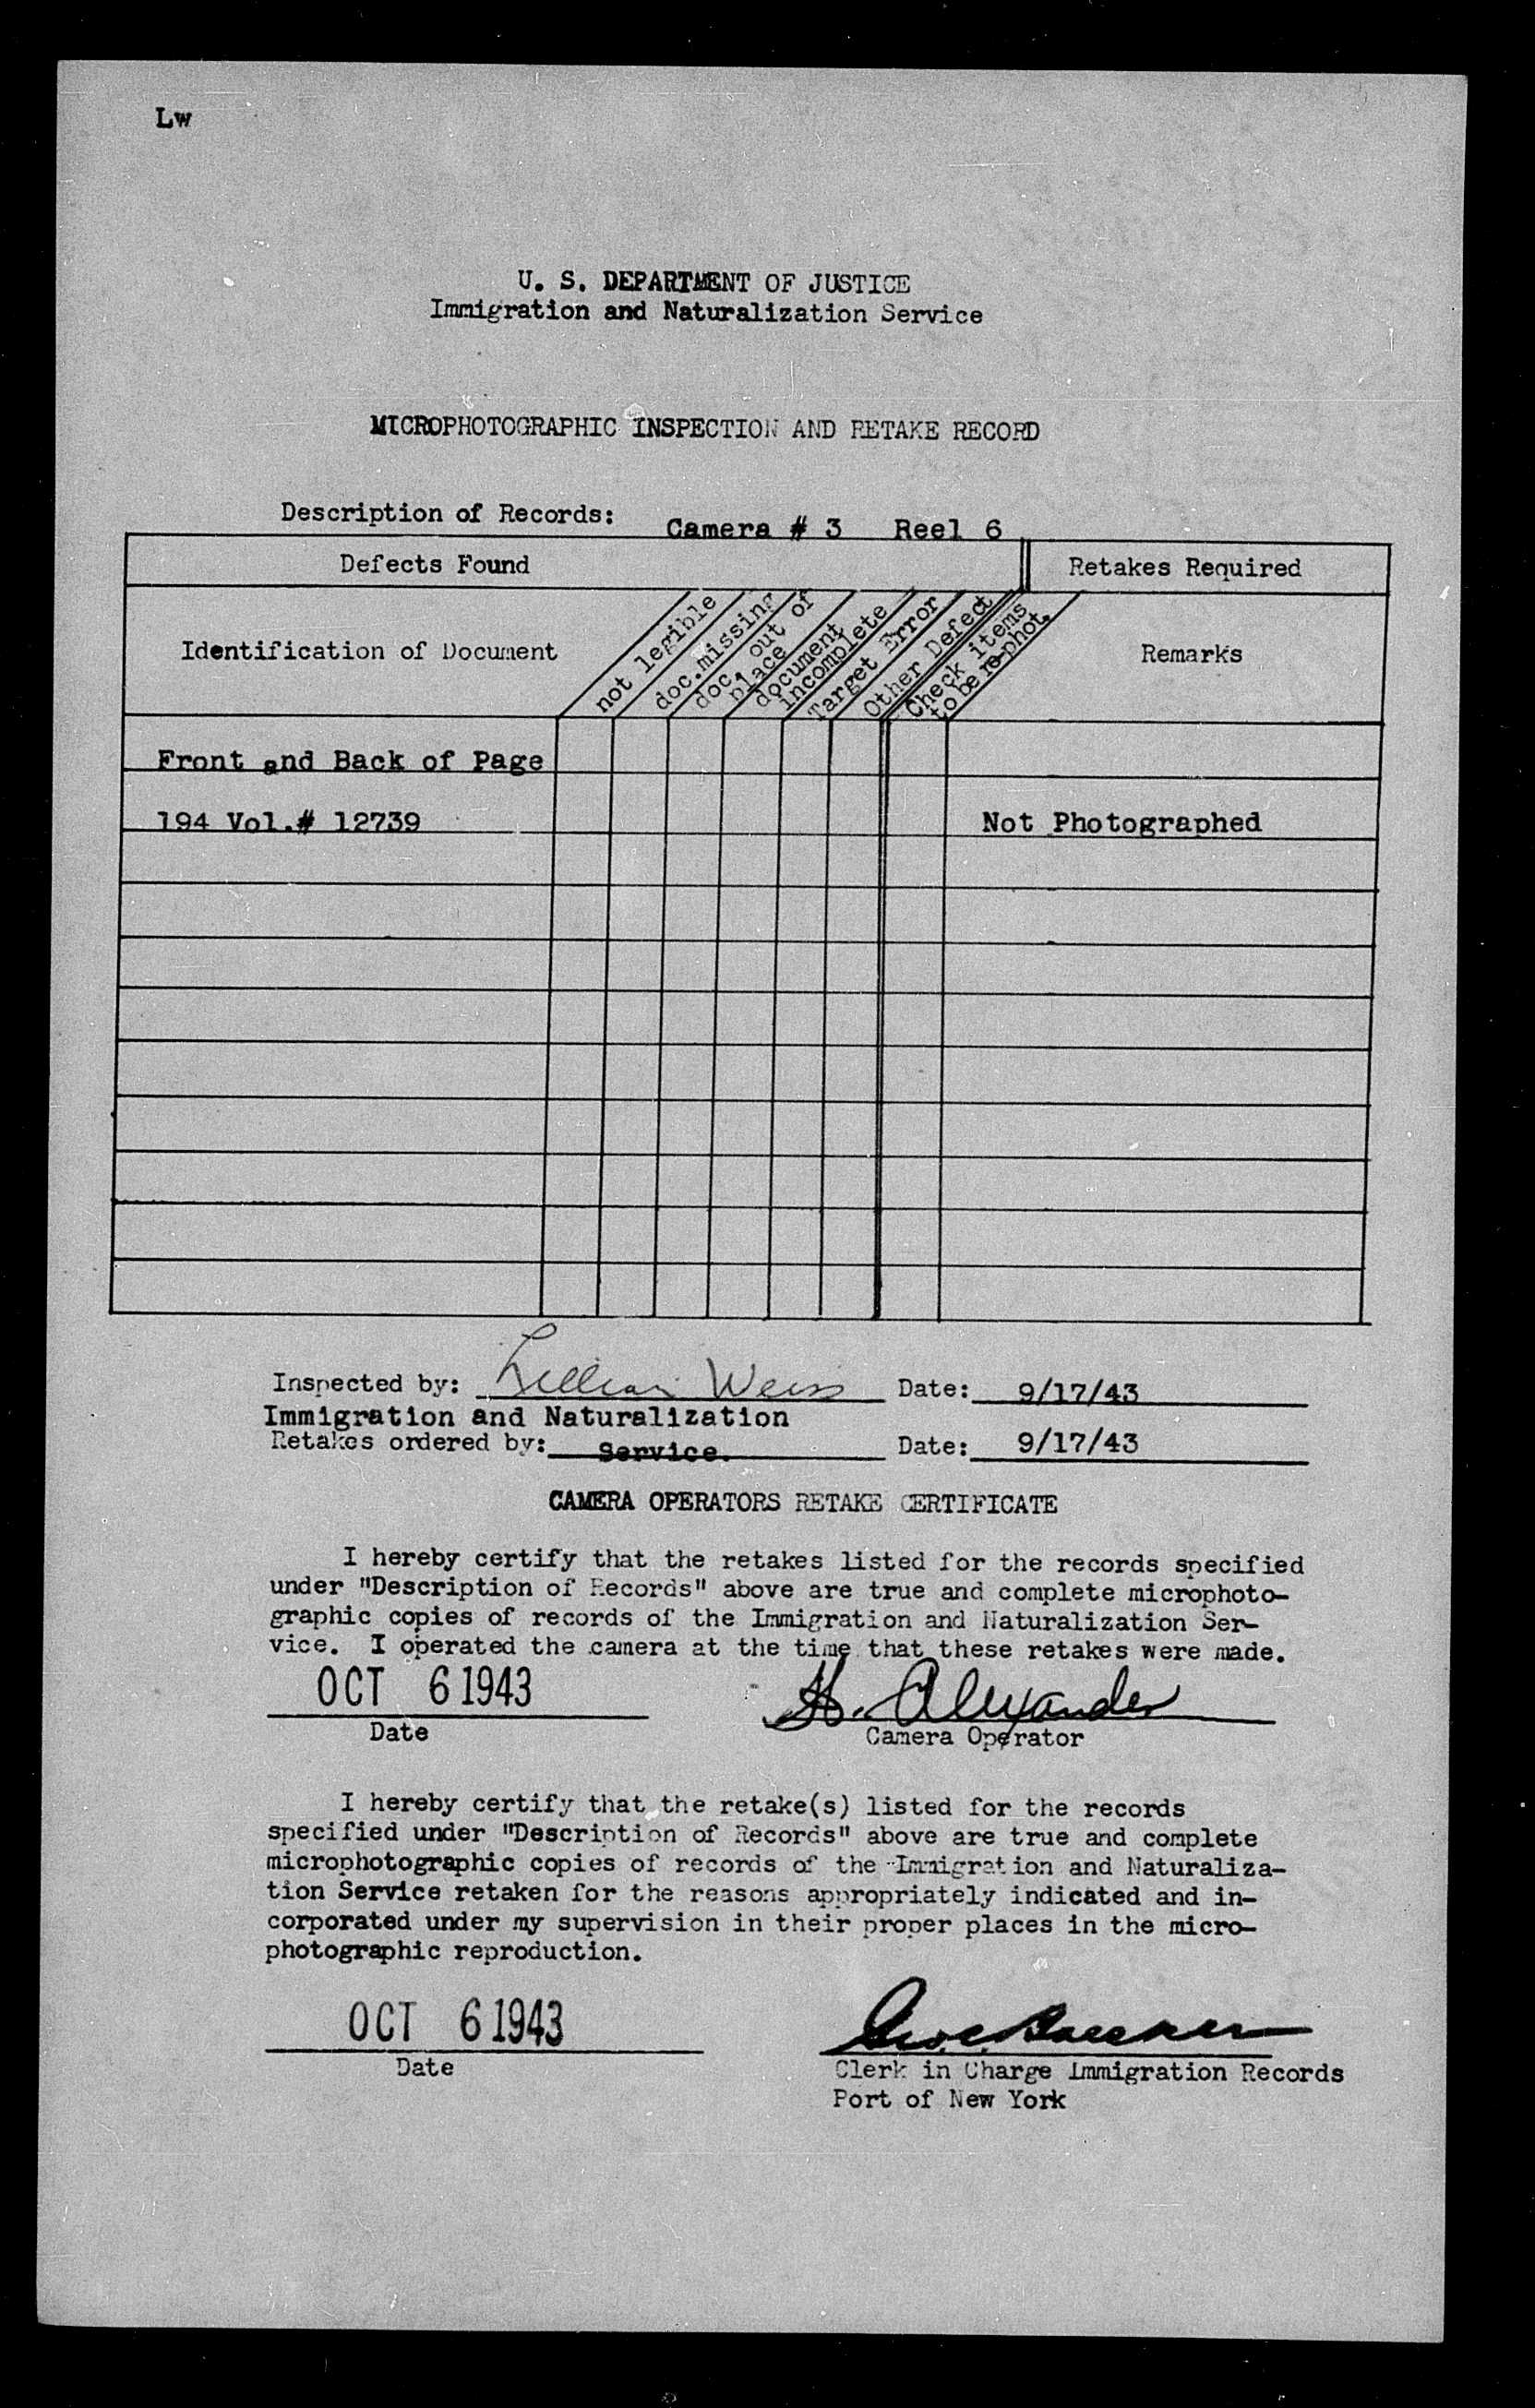 Lw
U. S. DEPARTMENT OF JUSTICE
Immigration and Naturalization Service
MICROPHOTOGRAPHIC INSPECTION AND RETAKE RECORD
Description of Records: Camera # 3 Reel 6
Defects Found Retakes Required
Identification of Document
not legible
doc.missing
doc. out of
place
document
incomplete
Target Error
Other Defect
Check items
to be re-phot.
Remarks
Front and Back of Page
194 Vol.# 12739 Not Photographed
Inspected by: Lillian Weiss Date: 9/17/43
Immigration and Naturalization
Retakes ordered by: Service. Date: 9/17/43
CAMERA OPERATORS RETAKE CERTIFICATE
I hereby certify that the retakes listed for the records specified
under "Description of Records" above are true and complete microphoto-
graphic copies of records of the Immigration and Naturalization Ser-
vice. I operated the camera at the time that these retakes were made.
OCT 6 1943 H. Alexander
Date Camera Operator
I hereby certify that the retake(s) listed for the records
specified under "Description of Records" above are true and complete
microphotographic copies of records of the Immigration and Naturaliza-
tion Service retaken for the reasons appropriately indicated and in-
corporated under my supervision in their proper places in the micro-
photographic reproduction.
OCT 6 1943
Date Clerk in Charge Immigration Records
Port of New York